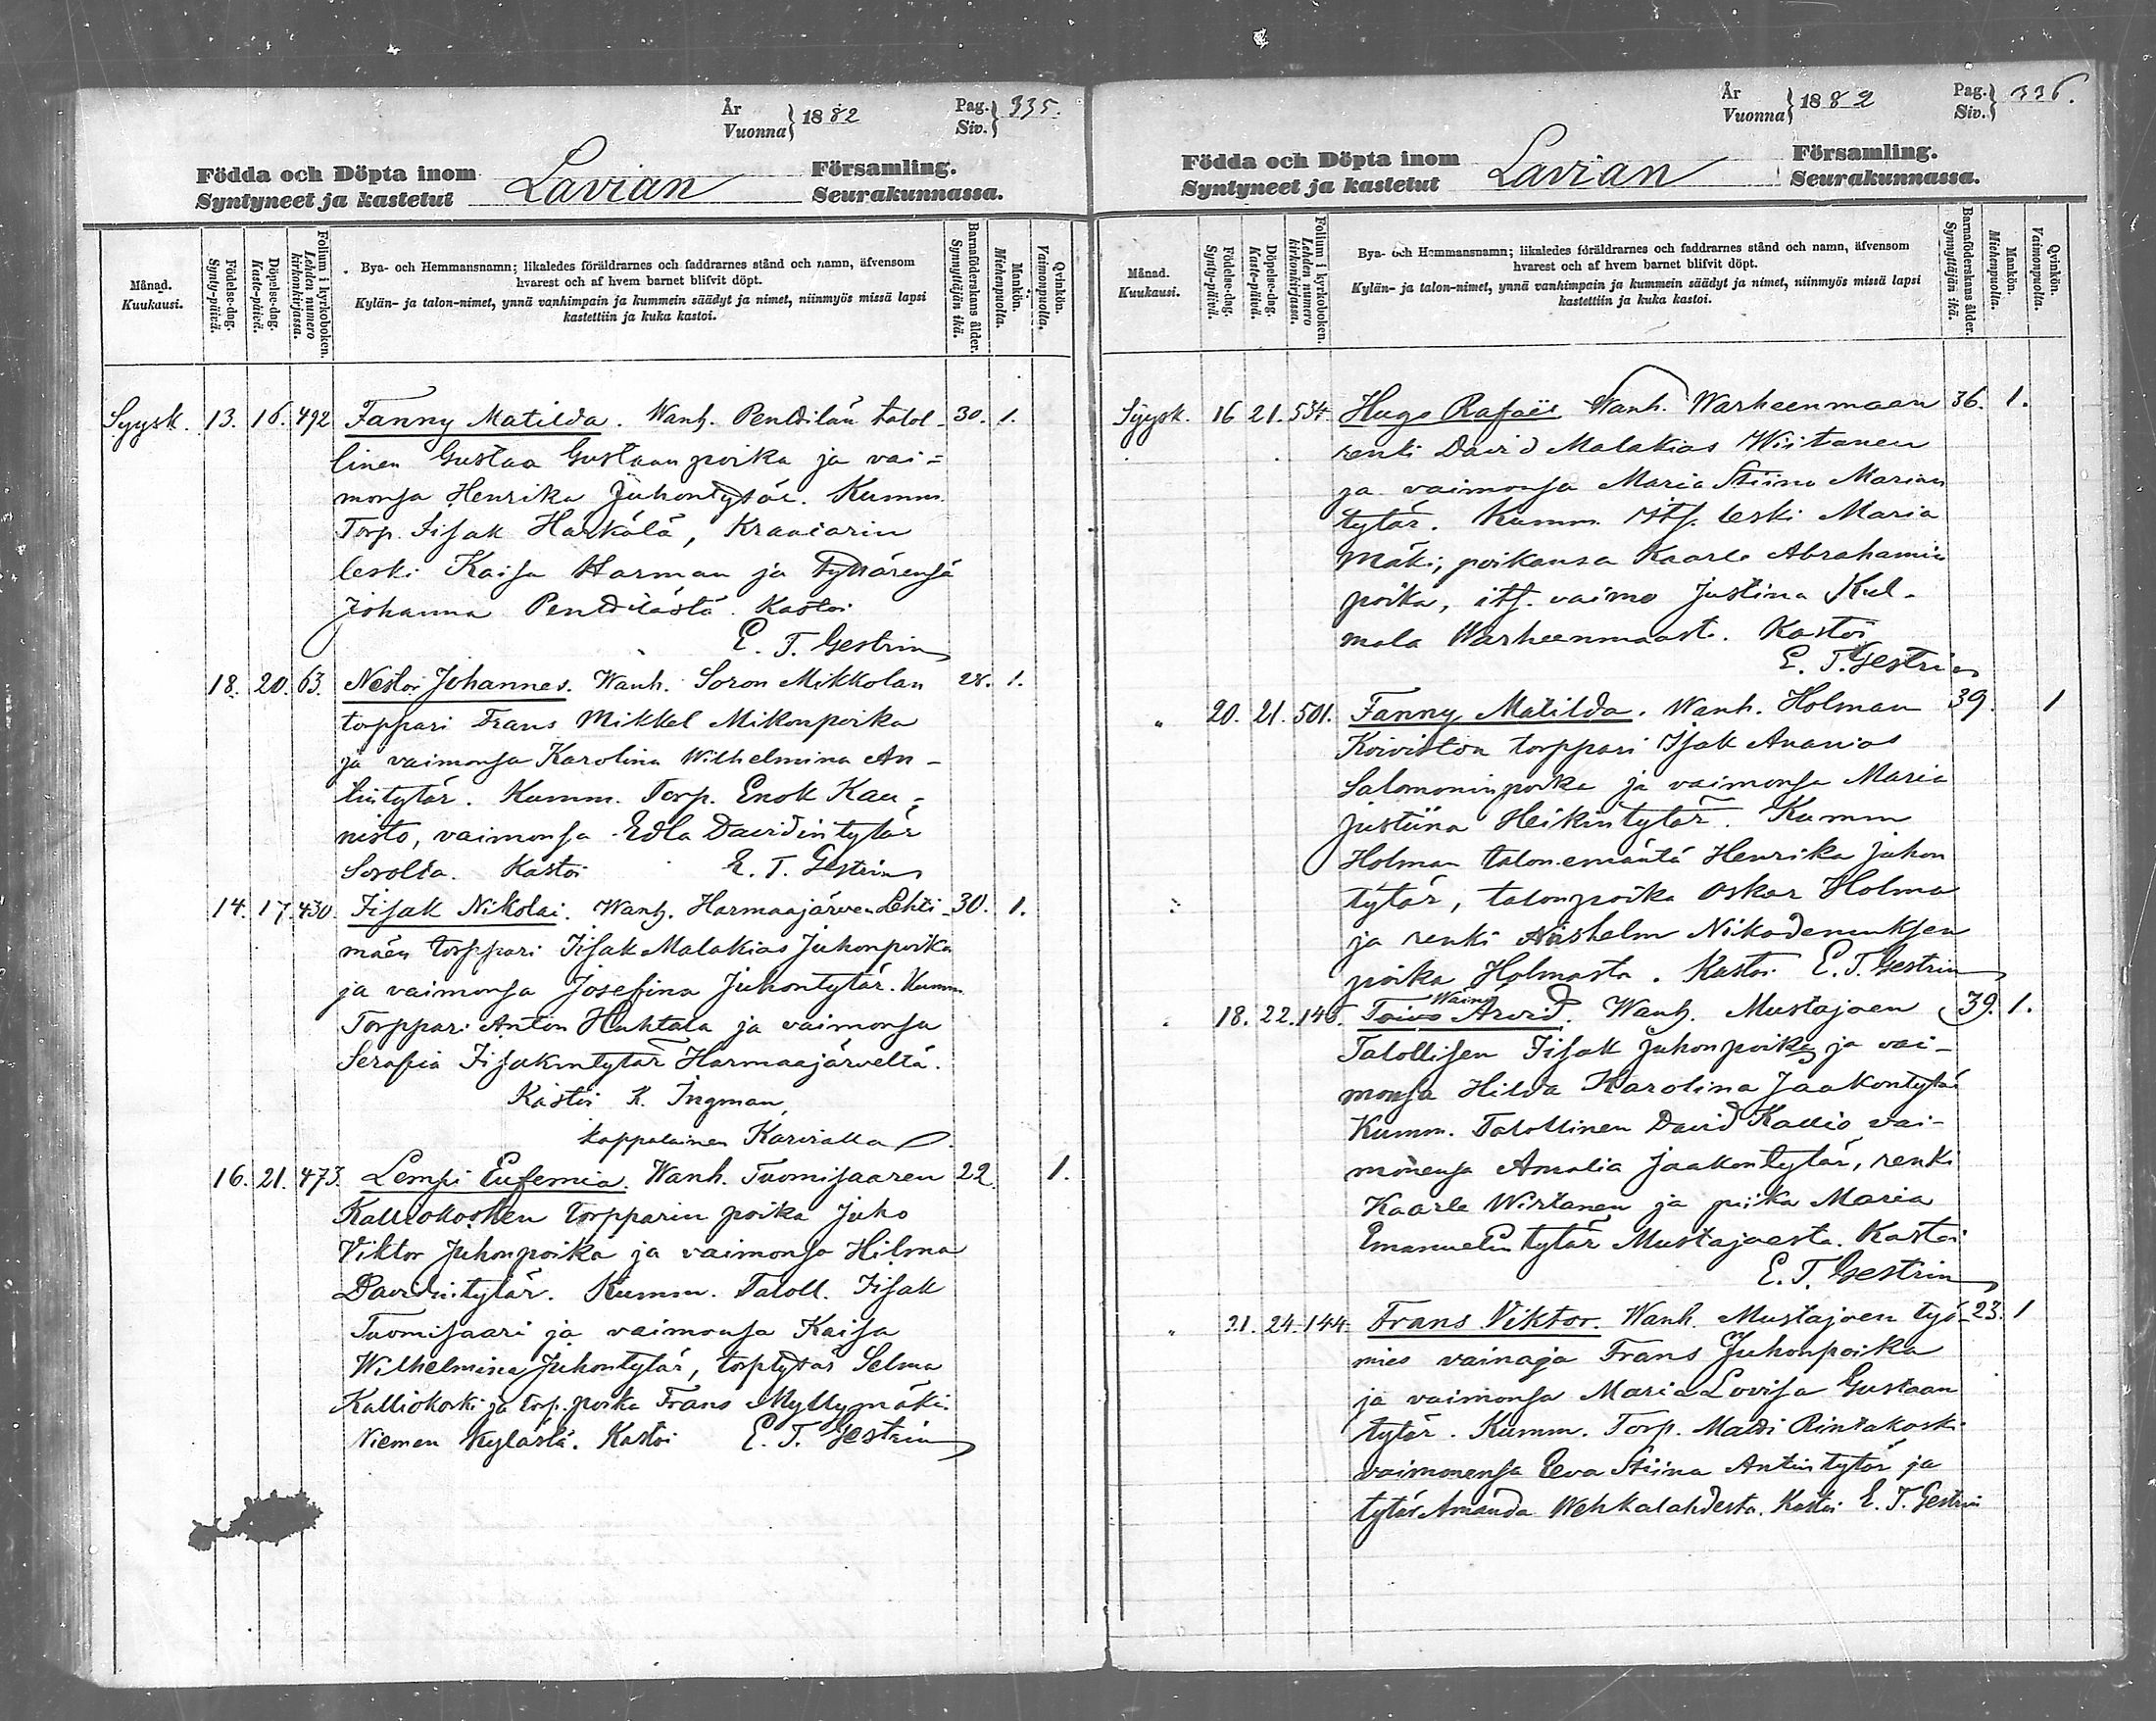 År
Vuonna } 1882
Pag.
Siv. } 335.
Födda och Döpta inom
Syntyneet ja kastetut
Lavian
Församling.
Seurakunnassa.
Månad.
Kuukausi.
Födelse-dag.
Synty-päivä.
Döpelse-dag.
Kaste-päivä.
Folium i kyrkoboken.
Lehden numero
kirkonkirjassa.
Bya- och Hemmansnamn; likaledes föräldrarnes och faddrarnes stånd och namn, äfvensom
hvarest och af hvem barnet blifvit döpt.
Kylän- ja talon-nimet, ynnä vanhimpain ja kummein säädyt ja nimet, niinmyös missä lapsi
kastettiin ja kuka kastoi.
Barnaföderskans ålder.
Synnyttäjän ikä.
Mankön.
Miehenpuolta.
Qvinkön.
Vaimonpuolta.
Syysk. 13. 16. 492 Fanny Matilda. Wanh. Penttilän talol- 30. 1.
linen Gustaa Gustaanpoika ja vai=
monsa Henrika Juhontytär. Kumm.
Torp. Iisak Harkälä, Kraaiarin
leski Kaisa Harman ja tyttärensä
Johanna Penttilästä. Kastoi
E. T. Gestrin
18. 20. 63. Nestor Johannes. Wanh. Soron Mikkolan 28. 1.
torppari Frans Mikkel Mikonpoika
ja vaimonsa Karolina Wilhelmina An-
tintytär. Kumm. Torp. Enok Kau=
nisto, vaimonsa Edla Davidintytär
Sorolta. Kastoi E. T. Gestrin
14. 17. 430. Iisak Nikolai. Wanh. Harmaajärven Lehti- 30. 1.
mäen torppari Iisak Malakias Juhonpoika
ja vaimonsa Josefina Juhontytär. Kumm.
Torppari Anton Huhtala ja vaimonsa
Serafia Iisakintytär Harmaajärveltä.
Kastoi K. Ingman,
kappalainen Karvialla
16. 21. 473. Lempi Eufemia. Wanh. Tuomisaaren 22. 1.
Kalliokosken torpparin poika Juho
Viktor Juhonpoika ja vaimonsa Hilma
Davidintytär. Kumm. Taloll. Iisak
Tuomisaari ja vaimonsa Kaisa
Wilhelmina Juhontytär, torptytär Selma
Kalliokoski ja torp. poika Frans Myllymäki
Niemen kylästä. Kastoi E. T. Gestrin
År
Vuonna } 1882
Pag.
Siv. } 336.
Födda och Döpta inom
Syntyneet ja kastetut
Lavian
Församling.
Seurakunnassa.
Månad.
Kuukausi.
Födelse-dag.
Synty-päivä.
Döpelse-dag.
Kaste-päivä.
Folium i kyrkoboken.
Lehden numero
kirkonkirjassa.
Bya- och Hemmansnamn; likaledes föräldrarnes och faddrarnes stånd och namn, äfvensom
hvarest och af hvem barnet blifvit döpt.
Kylän- ja talon-nimet, ynnä vanhimpain ja kummein säädyt ja nimet, niinmyös missä lapsi
kastettiin ja kuka kastoi.
Barnaföderskans ålder.
Synnyttäjän ikä.
Mankön.
Miehenpuolta.
Qvinkön.
Vaimonpuolta.
Syysk. 16 21. 534. Hugo Wanh. Warheenmaan 36. 1.
renki David Malakias Wiitanen
ja vaimonsa Maria Stiina Marian
tytär. Kumm. its. leski Maria
Mäki, poikansa Kaarle Abrahamin
poika, its. vaimo Justina Kul-
mala Warheenmaast. Kastoi
E. T. Gestrin
" 20. 21. 501. Fanny Matilda. Wanh. Holman 39. 1
Koiviston torppari Isak Ananias
Salomoninpoika ja vaimonsa Maria
Justiina Heikintytär. Kumm
Holman talon emäntä Henrika Juhon
tytär, talonpoika Oskar Holma
ja renki Nikodemuksen
poika Holmasta. Kastoi E. T. Gestrin
Wäinö
" 18. 22. 146. Toivo Arvid. Wanh. Mustajoen 39. 1.
Talollisen Iisak Juhonpoika ja vai-
monsa Hilda Karolina Jaakontytär
Kumm. Talollinen David Kallio vai-
monensa Amalia Jaakontytär, renki
Kaarle Wirtanen ja piika Maria
Emanuelintytär Mustajoesta. Kastoi
E. T. Gestrin
" 21. 24. 144. Frans Viktor. Wanh. Mustajoen työ- 23. 1
mies vainaja Frans Juhonpoika
ja vaimonsa Maria Lovisa Gustaan
tytär. Kumm. Torp. Matti Rintakoski
vaimonensa Eeva Stiina Antintytär ja
tytär Amanda Wehkalahdesta. Kastoi E. T. Gestrin